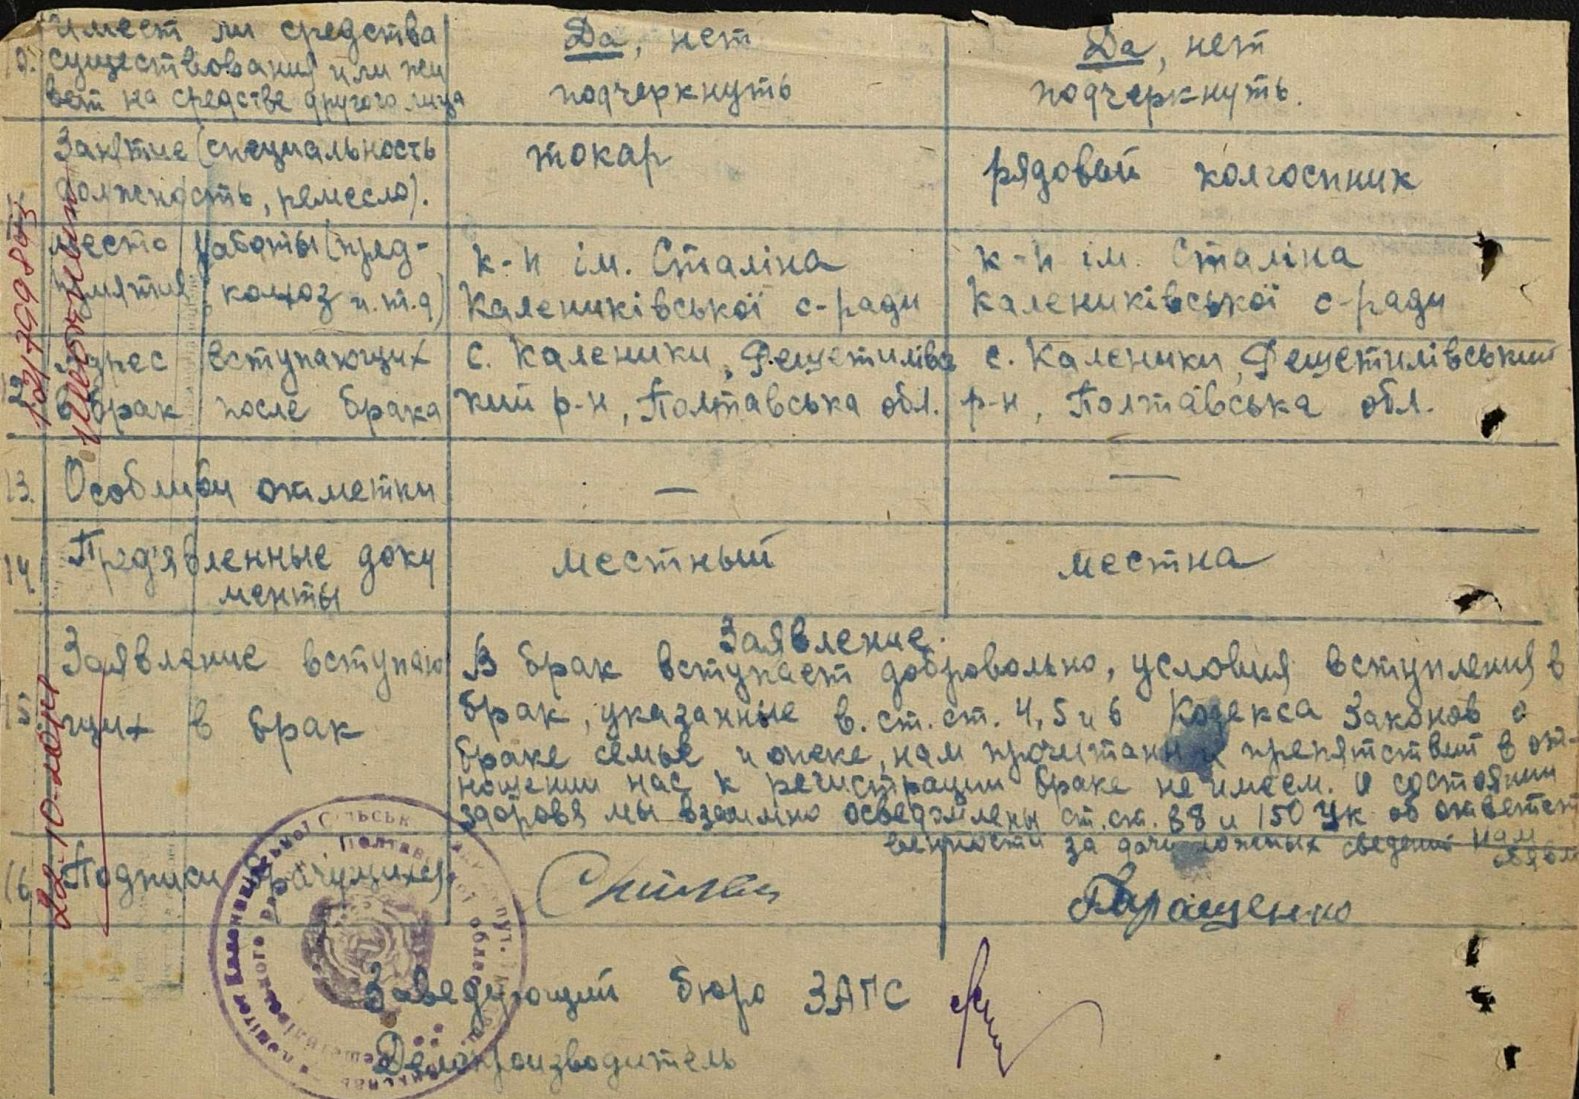 Имеет ли средства
существования или жи
вет на средстве другого лица
Да, нет
подчеркнуть
Да, нет
подчеркнуть.
Занятие (специальность
должность, ремесло).
токар
рядовой колгоспник
место работы (пред-
приятия, колхоз и.т.д)
к-п ім. Сталіна
Калениківської с-ради
к-п ім. Сталіна
Калениківської с-ради
Адрес вступающих
в брак после брака
с. Каленики, Решетилівс
кий р-н, Полтавська обл.
с. Каленики, Решетилівський
р-н, Полтавська обл.
13. Особливи отметки
—
—
14. Пред'явленные доку
менты
местный
местна
15. Заявление вступаю
щих в брак
Заявление.
В брак вступает добровольно, условия вступления в
брак, указанные в.ст.ст. 4,5 и 6 Кодекса Законов о
браке семье и опеке, нам прочитанны и препятствий в от-
ношении нас к регистрации браке не имеем. О состоянии
здоровя мы взаимно осведомлены ст.ст. 88 и 150 УК об ответст
венности за дачу ложных сведений нам
объявл
16. Подписи брачущихся
Геращенко
Заведующий бюро ЗАГС
Делопроизводитель
22-10-20